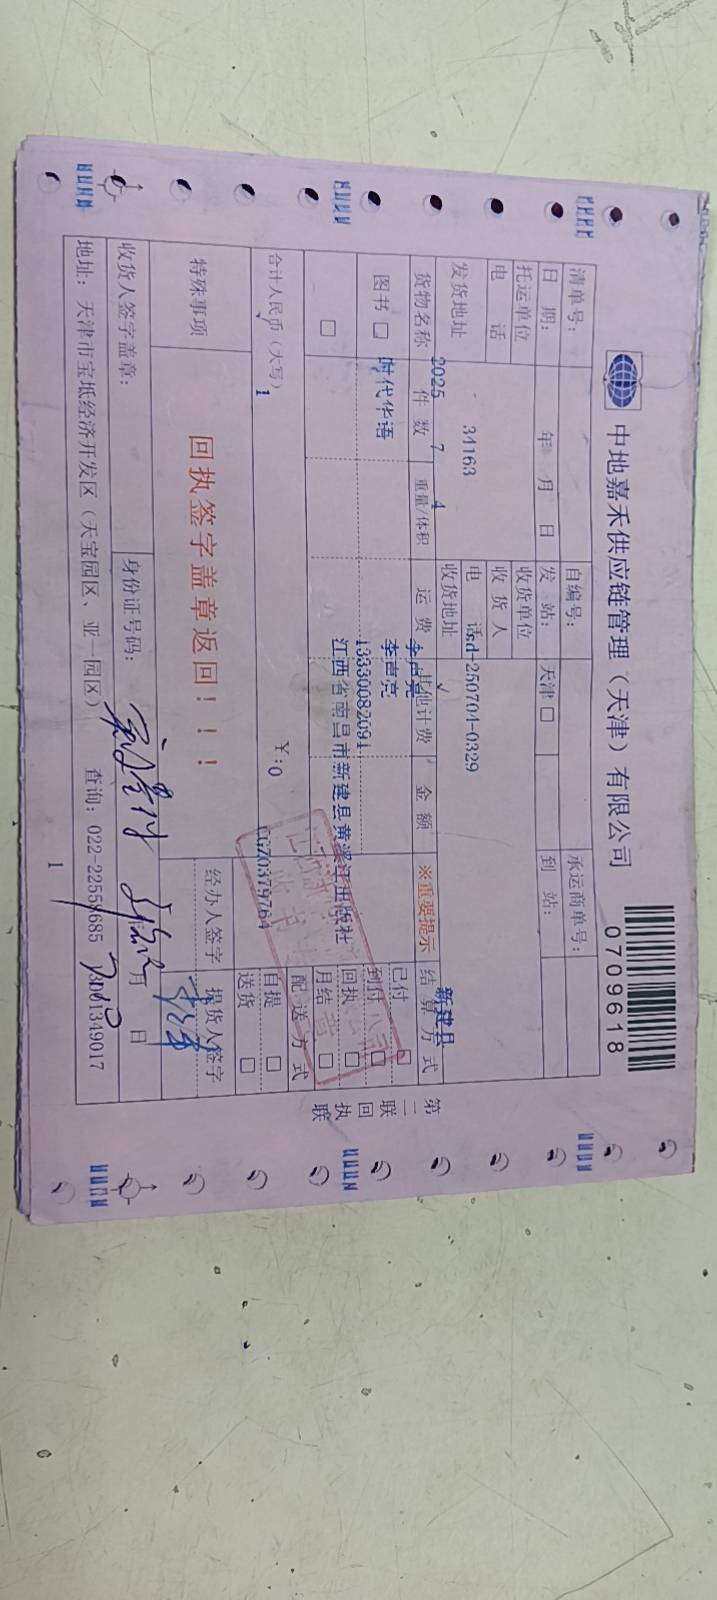 中地嘉禾供应链管理（天津）有限公司
0709618
清单号：
自编号：
承运商单号：
日 期： 年 月 日
发 站： 天津 □
到 站：
托运单位
收货单位
电 话
收 货 人
发货地址
34163
电 话
sd-250704-0329
收货地址
新建县
2025 7 4
李声亮
货物名称 件 数 重量/体积 运 费 其他计费 金 额 ※重要提示 结 算 方 式
图书 □
时代华语
李声亮
13330082091
江西省南昌市新建县黄溪江出版社
已付 □
到付 □
回执 □
月结 □
□
合计人民币（大写）
1
￥:0
CGZ0379764
配 送 方 式
自提 □
送货 □
特殊事项
回执签字盖章返回！！！
经办人签字
提货人签字
收货人签字盖章：
身份证号码：
月 日
地址：天津市宝坻经济开发区（天宝园区、亚一园区）
查询：022-22558685
1
第二联 回执联